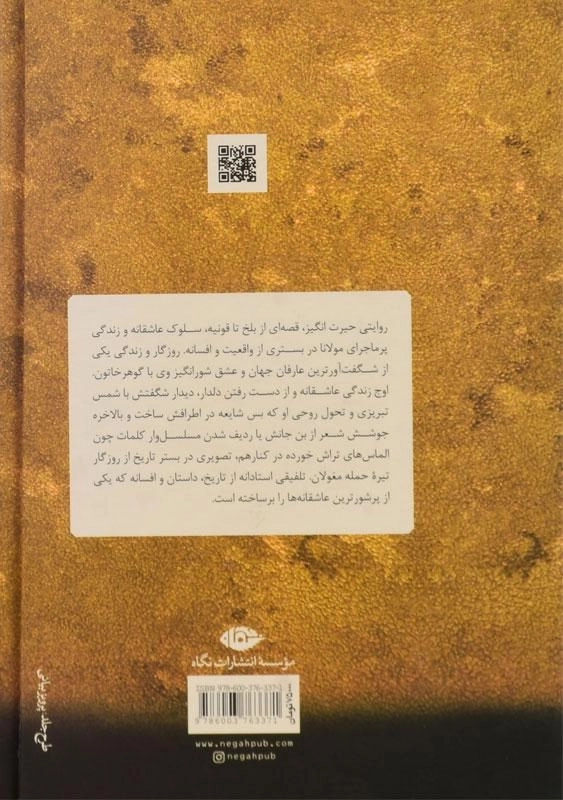 روایتی حیرت انگیز، قصه‌ای از بلخ تا قونیه، سلوک عاشقانه و زندگی
پرماجرای مولانا در بستری از واقعیت و افسانه. روزگار و زندگی یکی
از شگفت‌آورترین عارفان جهان و عشق شورانگیز وی با گوهرخاتون.
اوج زندگی عاشقانه و از دست رفتن دلدار، دیدار شگفتش با شمس
تبریزی و تحول روحی او که بس شایعه در اطرافش ساخت و بالاخره
جوشش شعر از بن جانش یا ردیف شدن مسلسل‌وار کلمات چون
الماس‌های تراش خورده در کنارهم، تصویری در بستر تاریخ از روزگار
تیرهٔ حمله مغولان. تلفیقی استادانه از تاریخ، داستان و افسانه که یکی
از پرشورترین عاشقانه‌ها را برساخته است.
مؤسسهٔ انتشارات نگاه
ISBN 978-600-376-337-1
9 786003 763371
۷۵۰۰۰ تومان
www.negahpub.com
negahpub
طرح جلد: پرویز بیانی